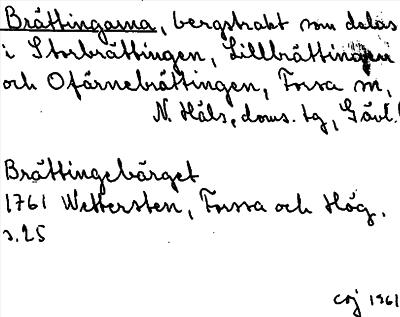 Brättingarna, bergstrakt som delas
i Storbrättingen, Lillbrättingen
och Ofärnebrättingen, Forsa sn,
N. Häls. doms. tg, Gävl.
Brättingebärget
1761 Wettersten, Forssa och Hög.
s. 25
coj 1961